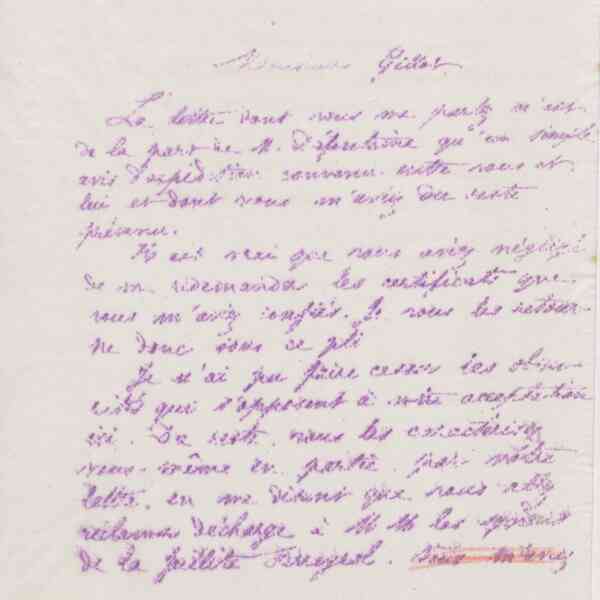 Monsieur Gillot
La lettre dont vous me parlez n'est
de la part de M. qu'un simple
avis d'expédition convenu entre vous et
lui et dont vous m'avez du reste
prévenu.
Il est vrai que vous avez négligé
de me redemander les certificats que
vous m'aviez confiés. Je vous les retour-
ne donc sous ce pli
Je n'ai pu faire cesser les obscu-
rités qui s'opposent à votre acceptation
ici. Du reste, vous les
vous-même en partie par votre
lettre en me disant que vous allez
réclamer décharge à MM les syndics
de la faillite Ferreyrol. Vous m'avez